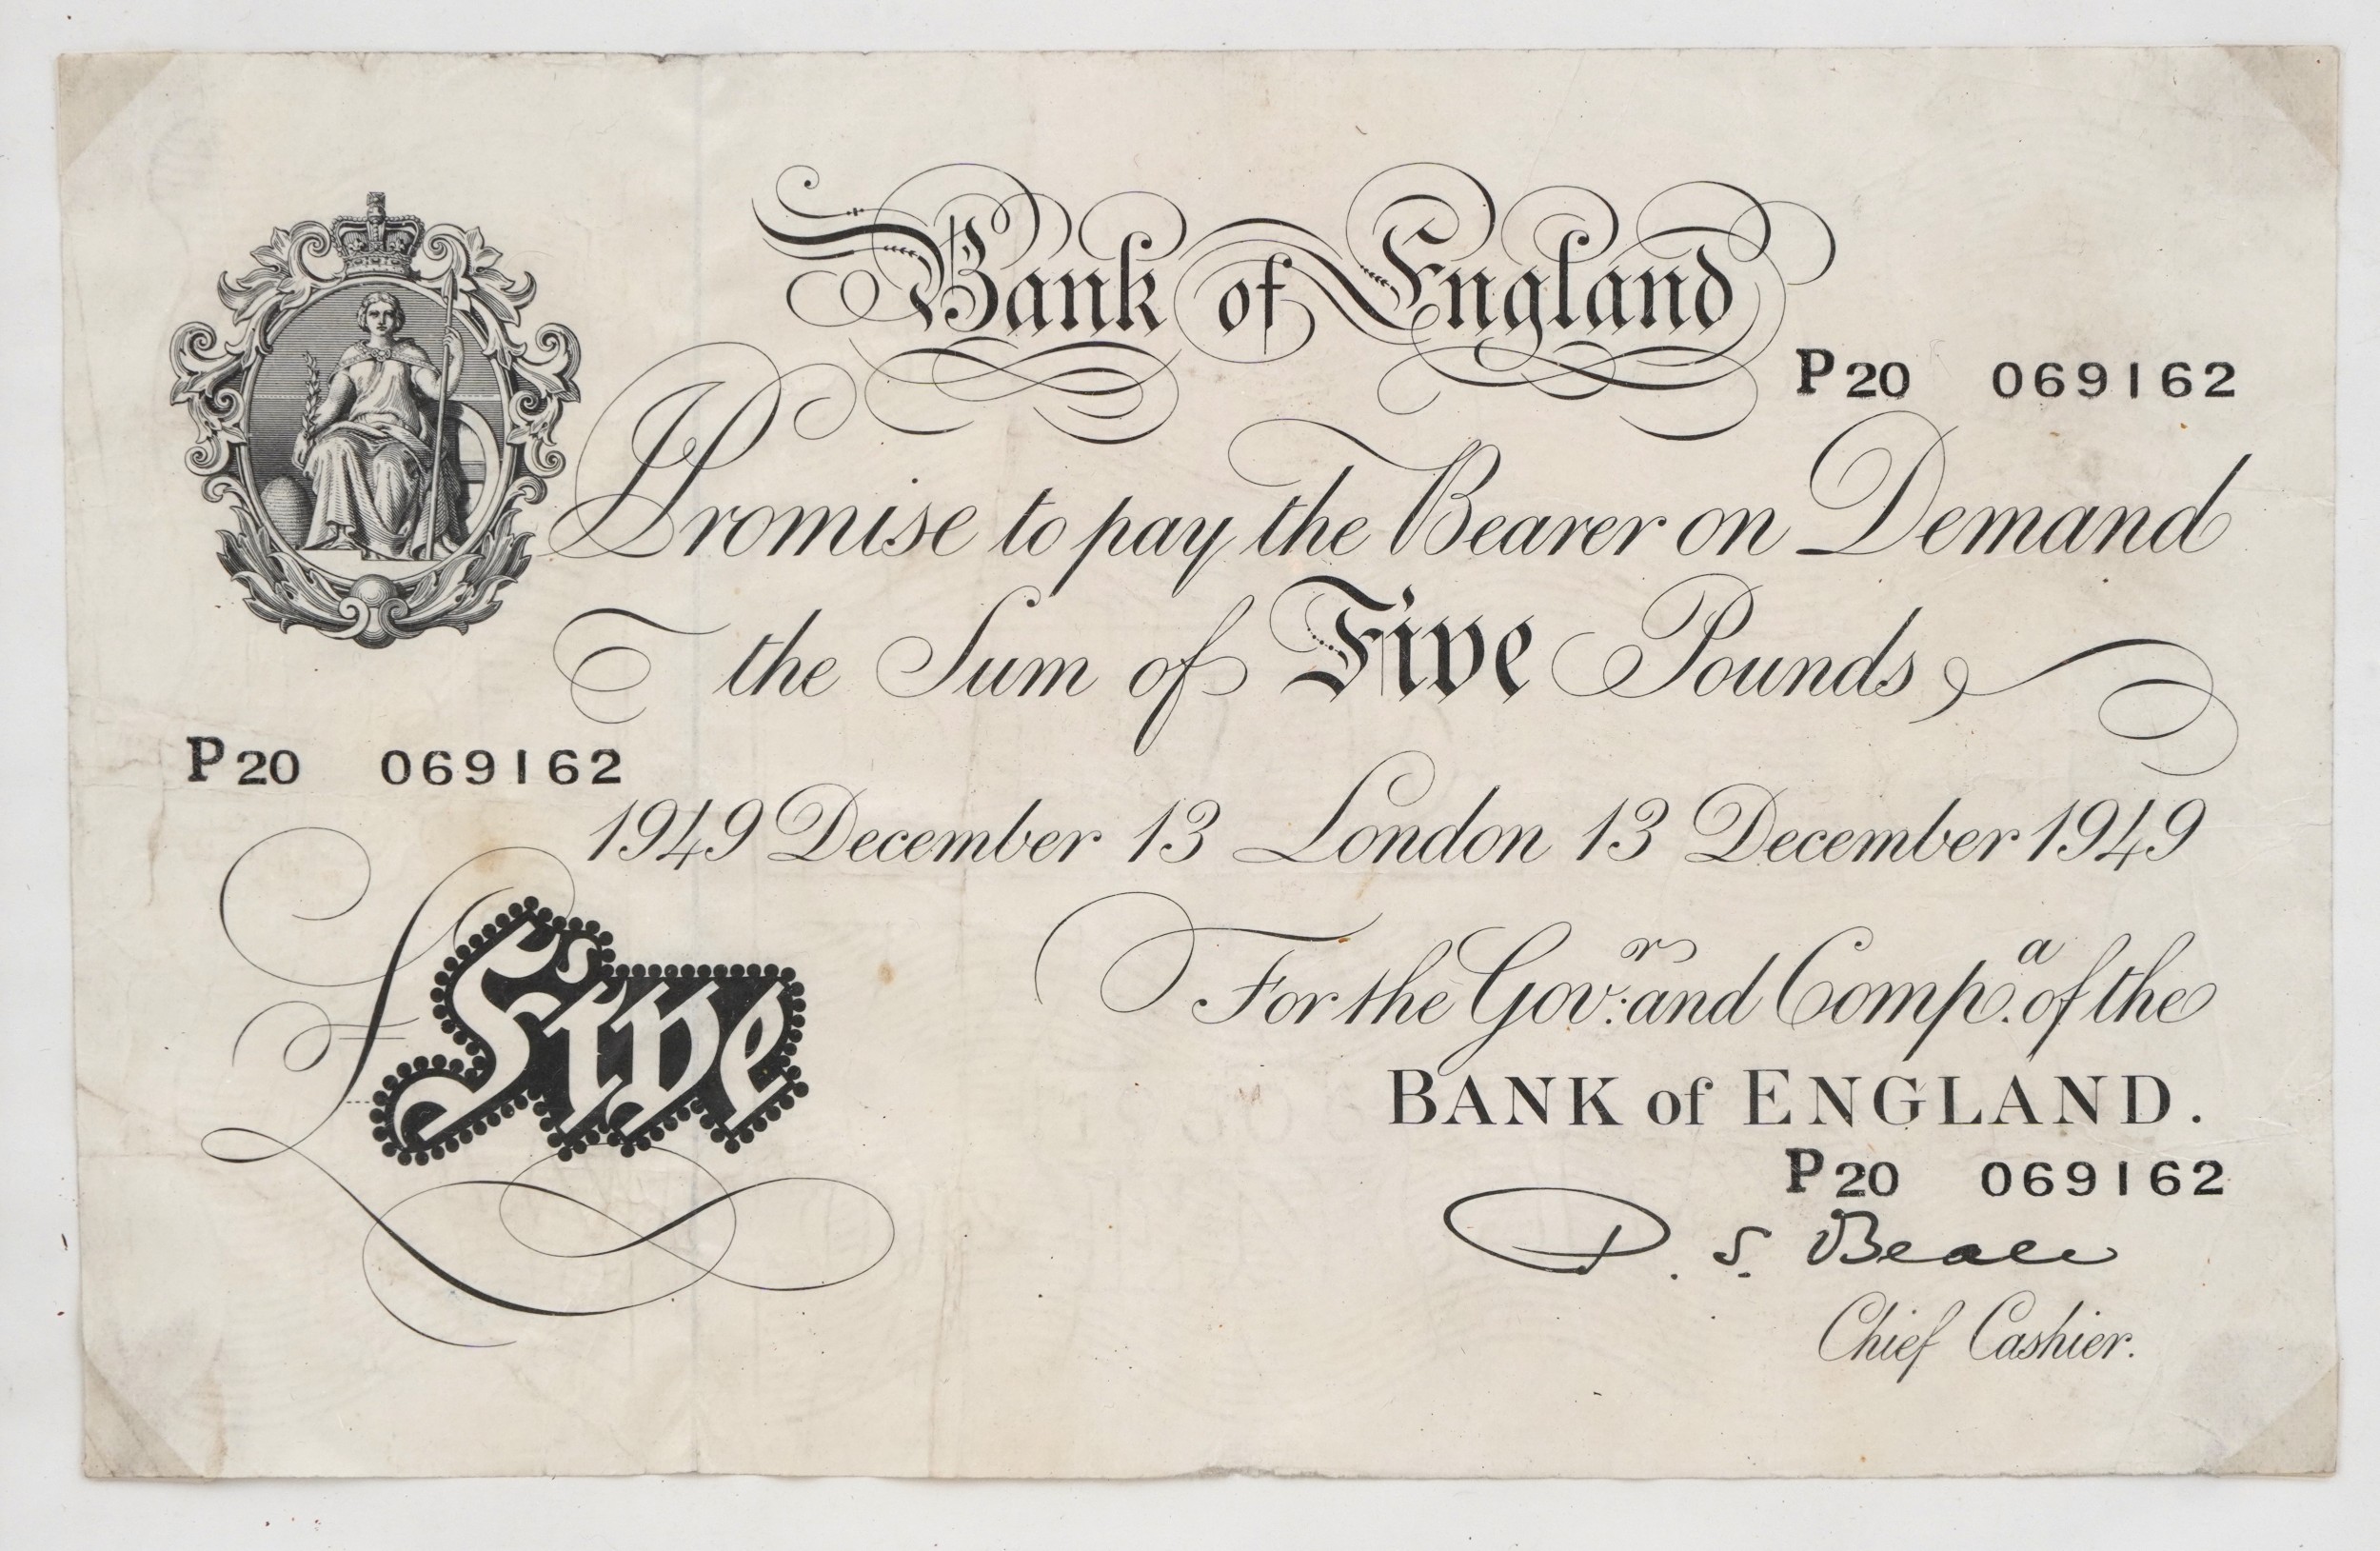 Bank of England
P20 069162
I Promise to pay the Bearer on Demand
the Sum of Five Pounds
P20 069162
1949 December 13 London 13 December 1949
For the Gov.r and Comp.a of the
BANK of ENGLAND.
£Five
P20 069162
P. S. Beale
Chief Cashier.